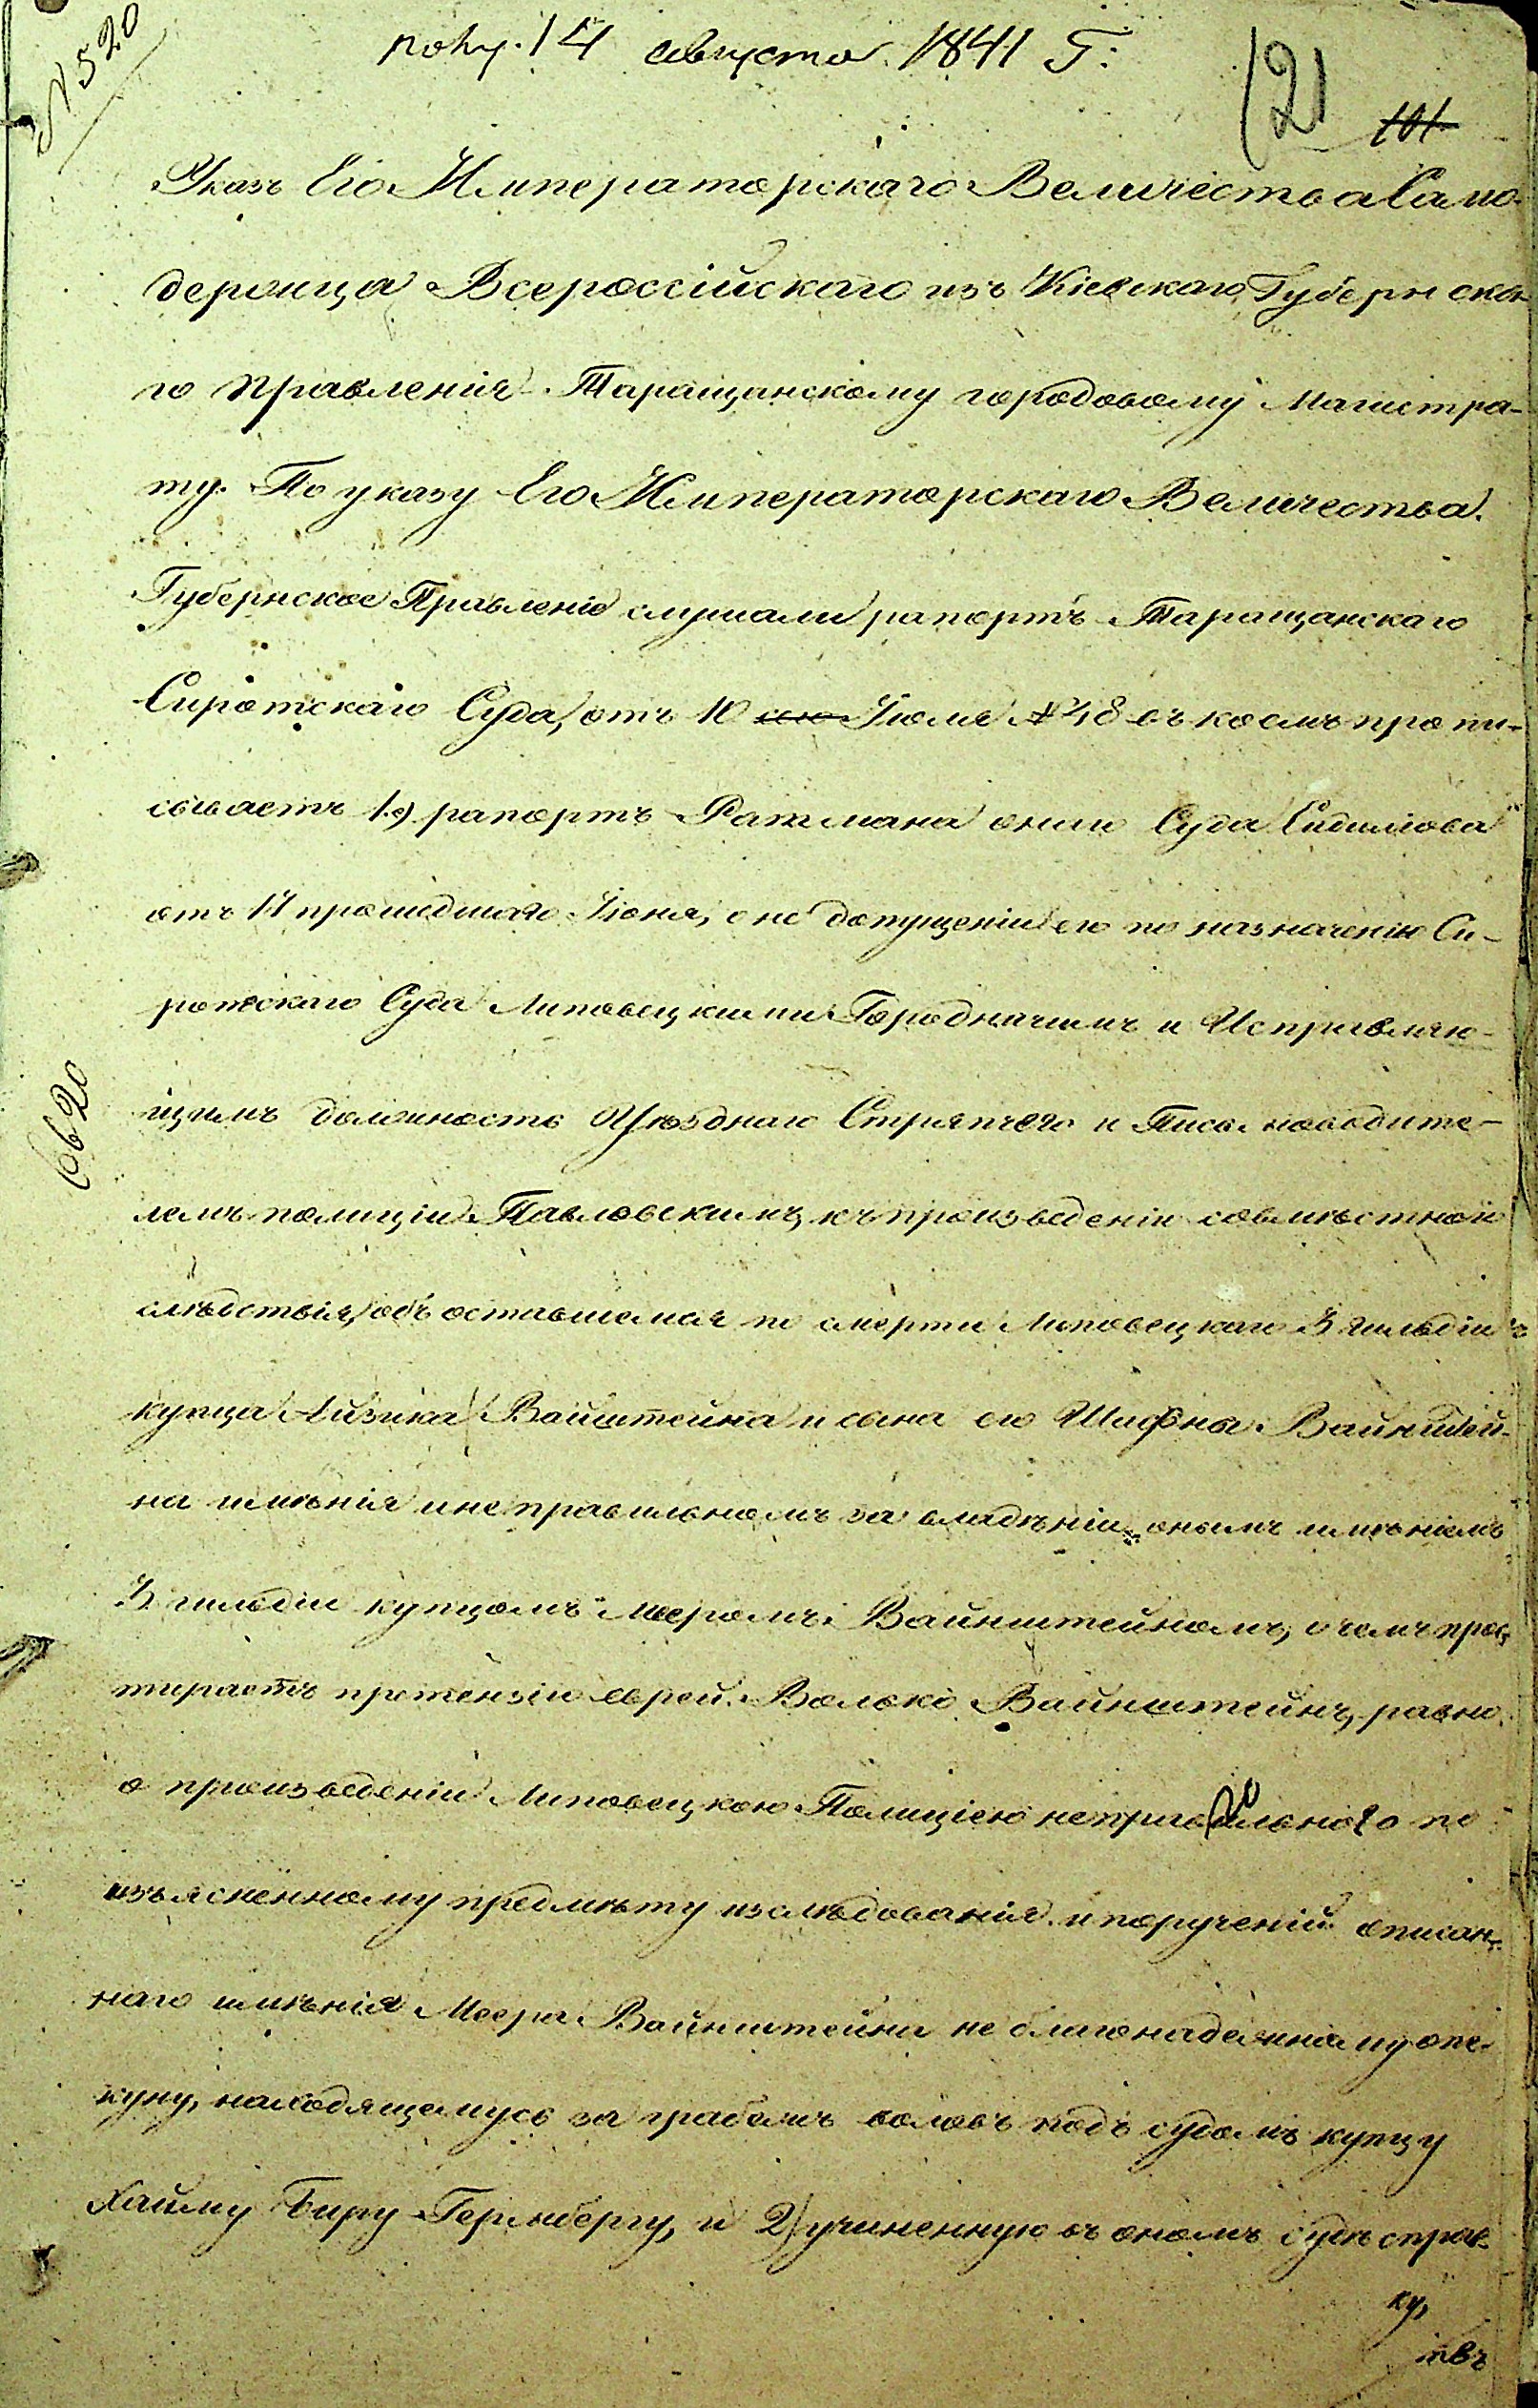 № 520
полу. 14 августа 1841 Г:
(21
101
Указъ Его Императорскаго Величества Само-
держца Всероссійскаго изъ Кіевскаго Губернска-
го Правленія Таращанскому городовому Магистра-
ту. По указу Его Императорскаго Величества.
Губернское Правленіе слушали рапортъ Таращанскаго
Сиротскаго Суда, отъ 10 сего Іюля № 48 въ коемъ пропи-
сываетъ 1е) рапортъ Ратмана онаго Суда
отъ 17 прошедшаго Іюня, о не допущеніи его по назначенію Си-
ротскаго Суда Липовецкими Городничимъ и Исправляю-
щимъ должность Уѣзднаго Стряпчего и Письмоводите-
лемъ полиціи Павловскимъ, къ произведенію совмѣстной
слѣдствія, объ оставшемся по смерти Липовецкаго 3 гильдіи
купца Айзика Вайнштейна и сына его Вайнштей-
на имѣнія и неправильномъ за владѣніи онымъ имѣніемъ
3 гильдіи купцомъ Мееромъ Вайнштейномъ, о чемъ прос-
тираетъ претензію еврей Волько Вайнштейнъ, равно
о произведеніи Липовецкою Полиціею неправильного по
изъясненному предмѣту изслѣдованія и порученій описан-
наго имѣнія Меера Вайнштейна не благонадежному опе-
куну, находящемуся за грабежъ воловъ подъ судомъ купцу
Хаиму Беру Гермбергу, и 2) учиненную въ ономъ судѣ справ-
ку,